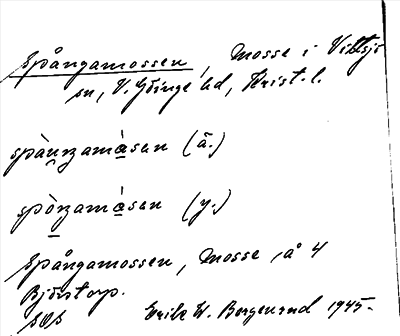 Spångamossen, Mosse i Vittsjö
sn, V. Göinge hd, Krist. l.
spàunzamàsen (ä.)
spòrzamàsen (y.)
Spångamossen, Mosse, å 4
Björstorp.
Erik W. Bergenrud 1945.